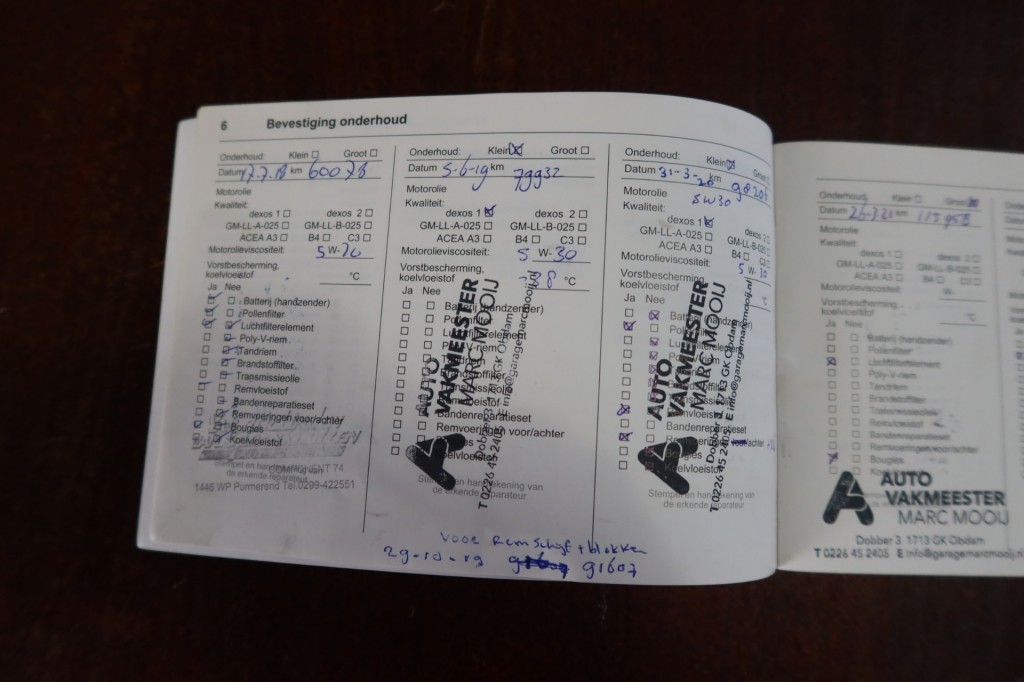 6 Bevestiging onderhoud
Onderhoud: Klein ☐ Groot ☐
Datum 17-7-18 km 60078
Motorolie
Kwaliteit:
dexos 1 ☐ dexos 2 ☐
GM-LL-A-025 ☐ GM-LL-B-025 ☐
ACEA A3 ☐ B4 ☐ C3 ☐
Motorolieviscositeit: 5 W-30
Vorstbescherming,
koelvloeistof °C
Ja Nee
Batterij (handzender)
Pollenfilter
Luchtfilterelement
Poly-V-riem
Tandriem
Brandstoffilter
Transmissieolie
Remvloeistof
Bandenreparatieset
Remvoeringen voor/achter
Bougies
Koelvloeistof
Stempel en
de erkende reparateur
COMPONENT 74
1446 WP Purmerend Tel.0299-422551
Onderhoud: Klein ☒ Groot ☐
Datum 5-6-19 km 79932
Motorolie
Kwaliteit:
dexos 1 ☒ dexos 2 ☐
GM-LL-A-025 ☐ GM-LL-B-025 ☐
ACEA A3 ☐ B4 ☐ C3 ☐
Motorolieviscositeit: 5 W-30
Vorstbescherming,
koelvloeistof -38 °C
Ja Nee
Batterij (handzender)
Bandenreparatieset
Remvoeringen voor/achter
de erkende reparateur
AUTO
VAKMEESTER
MARC MOOIJ
Dobber 3 1713 GK Obdam
T 0226 45 2405 E info@garagemarcmooij.nl
Onderhoud: Klein ☒ Groot
Datum 31-3-20 km
Motorolie 5W30
Kwaliteit:
dexos 1 ☒ dexos 2
GM-LL-A-025 ☐ GM-LL-B-025
ACEA A3 ☐ B4 ☐ C3
Motorolieviscositeit: 5 W-30
Vorstbescherming,
koelvloeistof °C
Ja Nee
Bandenreparatieset
Koelvloeistof
de erkende reparateur
AUTO
VAKMEESTER
MARC MOOIJ
Dobber 3 1713 GK Obdam
T 0226 45 2405 E info@garagemarcmooij.nl
voor Remschijf + blokken
29-10-19 91607
Onderhoud: Klein ☐ Groot ☒
Datum km
Motorolie
Kwaliteit:
dexos 1 ☐ dexos 2 ☐
GM-LL-A-025 ☐ GM-LL-B-025
ACEA A3 ☐ B4 ☐ C3
Motorolieviscositeit: W-
Vorstbescherming,
koelvloeistof °C
Ja Nee
Batterij (handzender)
Pollenfilter
Luchtfilterelement
Poly-V-riem
Tandriem
Brandstoffilter
Transmissieolie
Remvloeistof
Bandenreparatieset
Remvoeringen voor/achter
Bougies
AUTO
VAKMEESTER
MARC MOOIJ
Dobber 3 1713 GK Obdam
T 0226 45 2405 E info@garagemarcmooij.nl